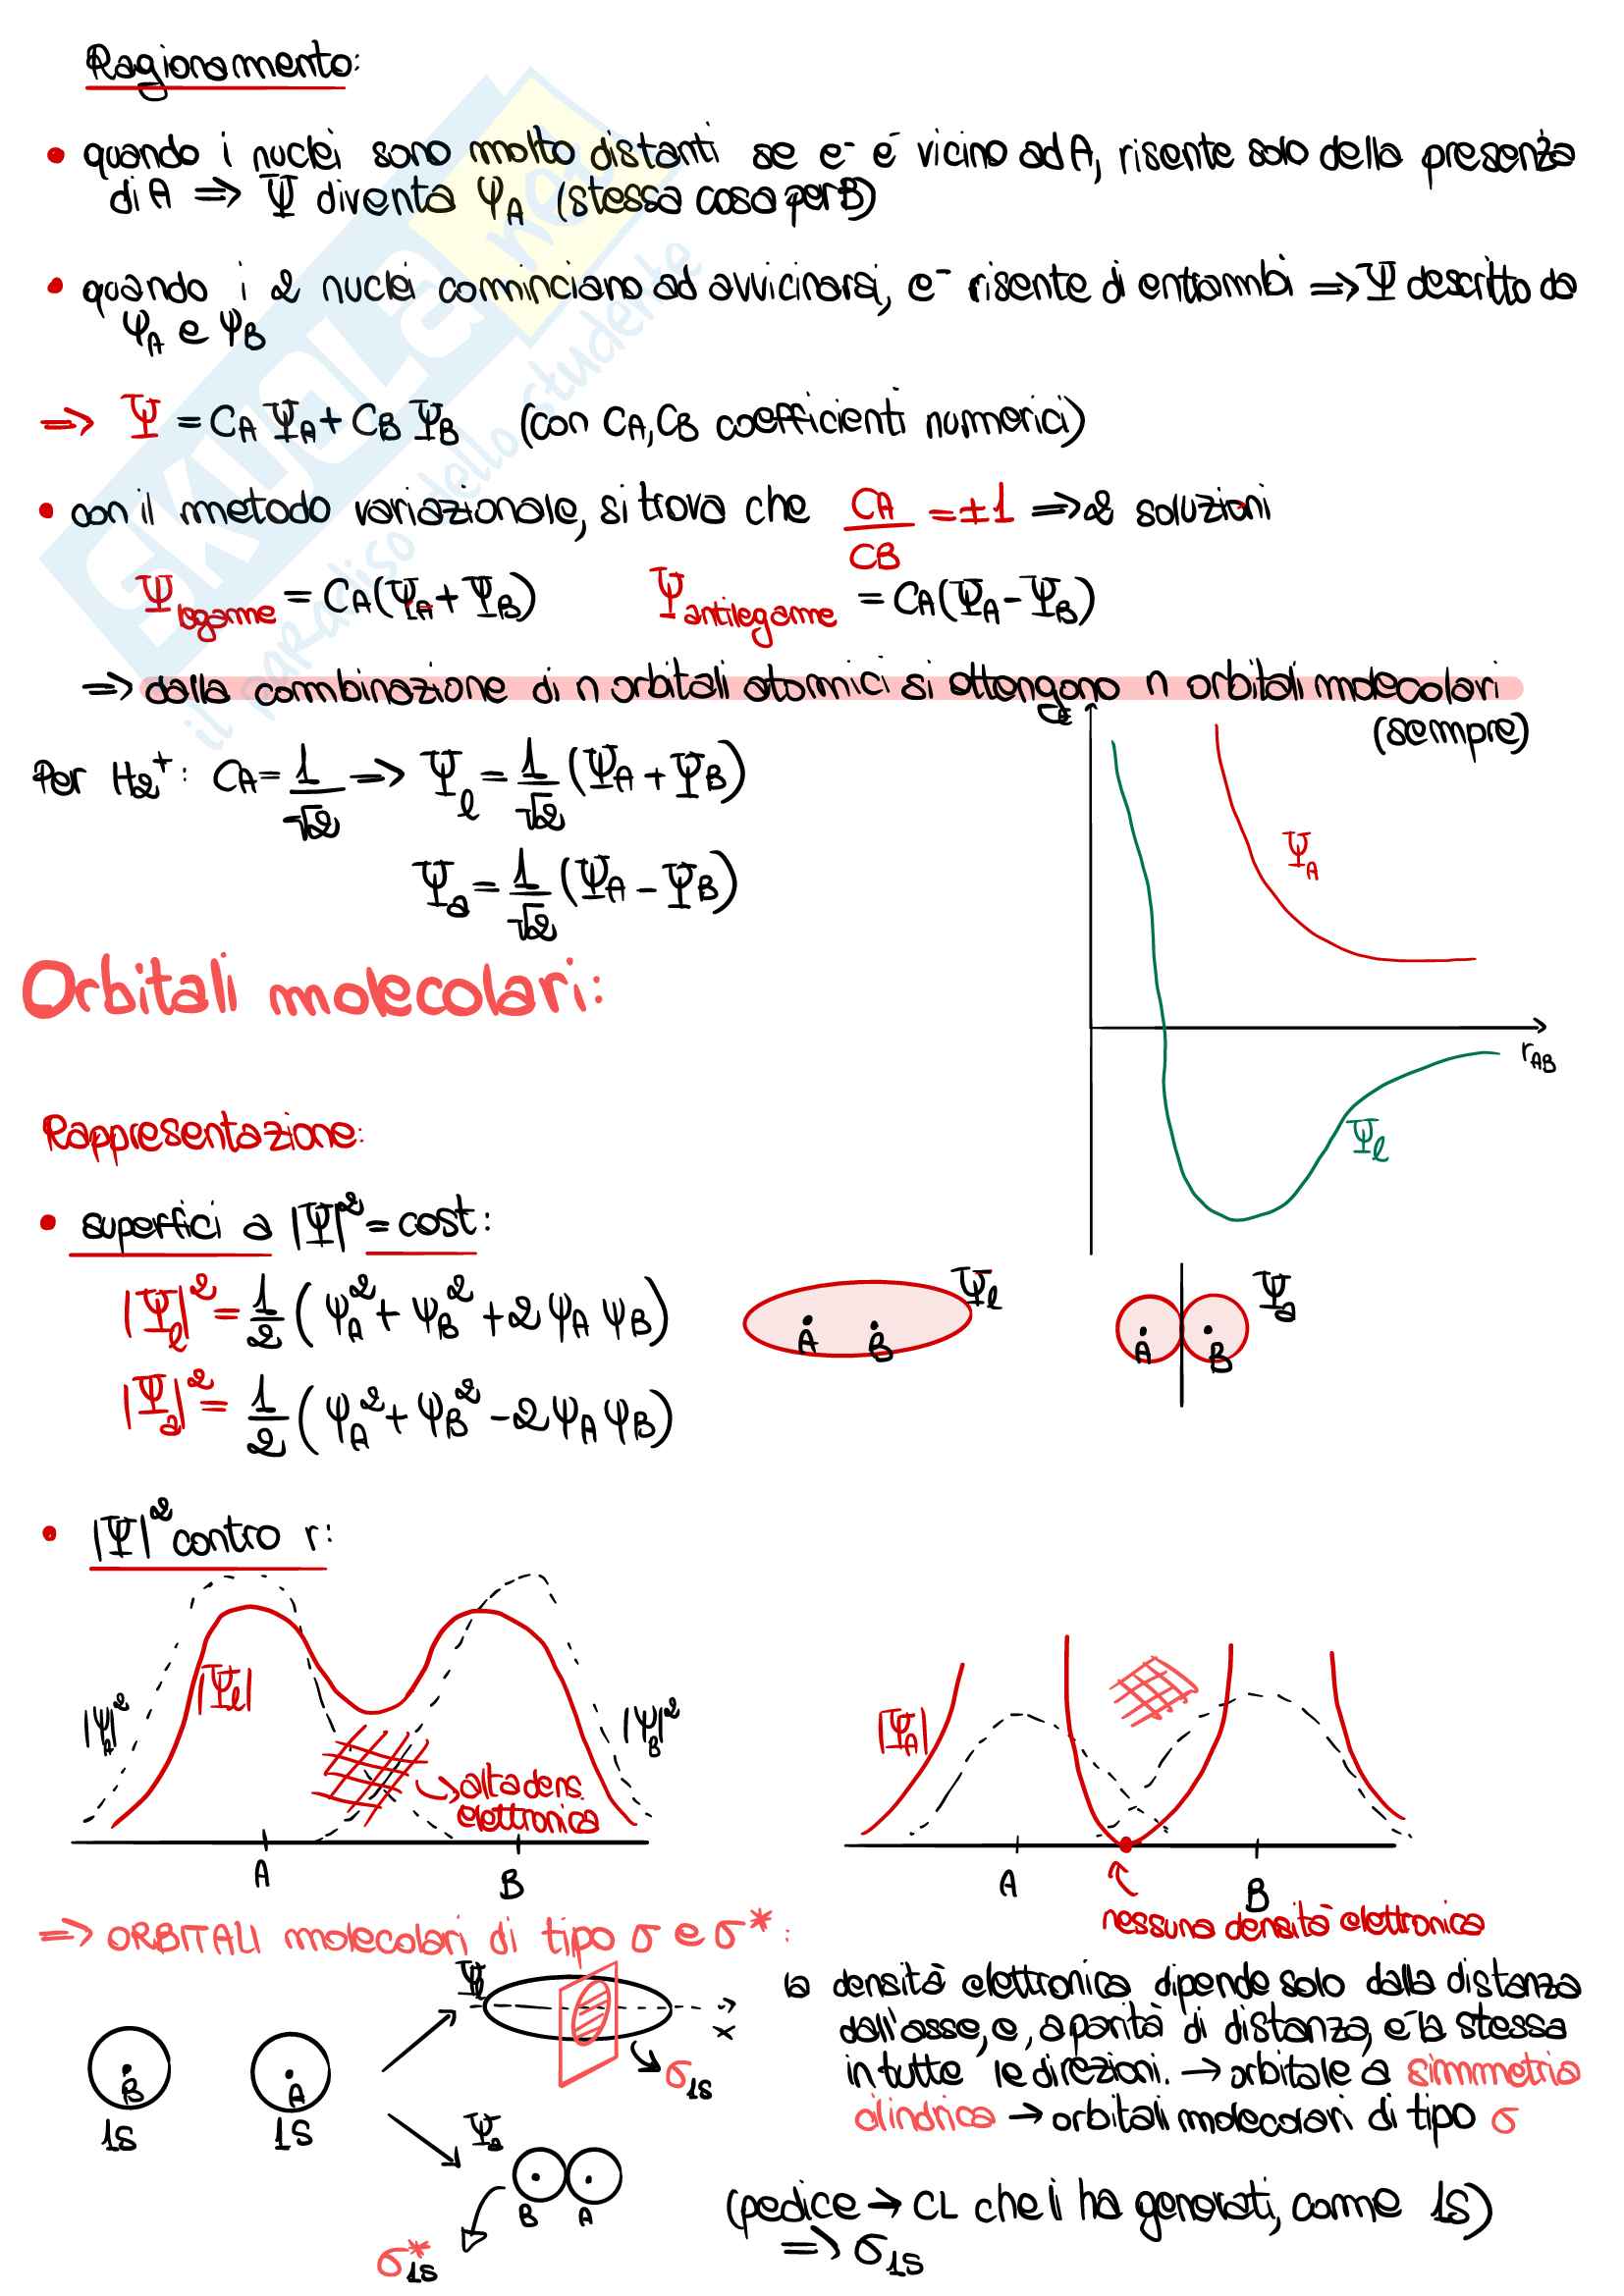 Ragionamento:
• quando i nuclei sono molto distanti se e⁻ è vicino ad A, risente solo della presenza
di A ⇒ Ψ diventa ψ_A (stessa cosa per B)
• quando i 2 nuclei cominciano ad avvicinarsi, e⁻ risente di entrambi ⇒ Ψ descritto da
ψ_A e ψ_B
⇒ Ψ = C_A Ψ_A + C_B Ψ_B (con C_A, C_B coefficienti numerici)
• con il metodo variazionale, si trova che C_A/C_B = ±1 ⇒ 2 soluzioni
Ψ_legame = C_A(Ψ_A + Ψ_B) Ψ_antilegame = C_A(Ψ_A - Ψ_B)
⇒ dalla combinazione di n orbitali atomici si ottengono n orbitali molecolari
(sempre)
E
Per H₂⁺: C_A = 1/√2 ⇒ Ψ_l = 1/√2 (Ψ_A + Ψ_B)
Ψ_a = 1/√2 (Ψ_A - Ψ_B)
Ψ_A
r_AB
Ψ_l
Orbitali molecolari:
Rappresentazione:
• superfici a |Ψ|² = cost:
|Ψ_l|² = 1/2 (ψ_A² + ψ_B² + 2 ψ_A ψ_B)
A B Ψ_l
A B Ψ_a
|Ψ_a|² = 1/2 (ψ_A² + ψ_B² - 2 ψ_A ψ_B)
• |Ψ|² contro r:
|ψ_A|²
|Ψ_l|
|ψ_B|²
alta dens.
elettronica
A B
|Ψ_A|
A B
nessuna densità elettronica
⇒ ORBITALI molecolari di tipo σ e σ*:
B
1s
A
1s
Ψ_l
x
σ_1s
Ψ_a
B A
σ*_1s
la densità elettronica dipende solo dalla distanza
dall'asse, e, a parità di distanza, è la stessa
in tutte le direzioni. → orbitale a simmetria
cilindrica → orbitali molecolari di tipo σ
(pedice → CL che li ha generati, come 1s)
⇒ σ_1s
SKUOLA.net
il paradiso dello studente